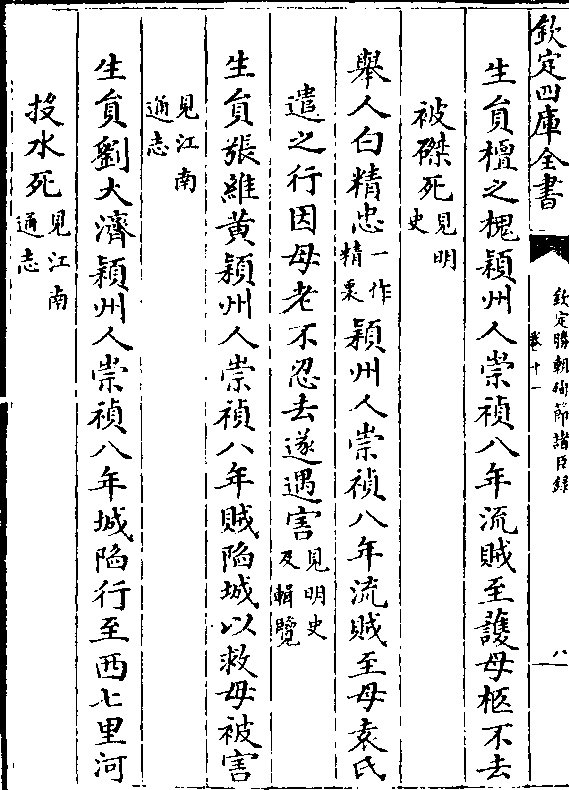 欽定四庫全書
欽定勝朝殉節諸臣錄
卷十一
八
生員檀之槐潁州人崇禎八年流賊至護母柩不去
被磔死見明史
舉人白精忠一作精衷潁州人崇禎八年流賊至母袁氏
遣之行因母老不忍去遂遇害見明史及輯覽
生員張維黃潁州人崇禎八年賊陷城以救母被害
見江南通志
生員劉大濟潁州人崇禎八年城陷行至西七里河
投水死見江南通志